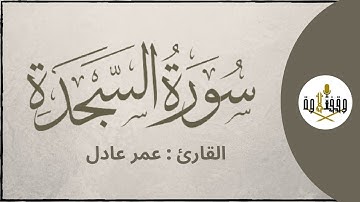 سُورَةُ السَّجَدَة
القارئ : عمر عادل